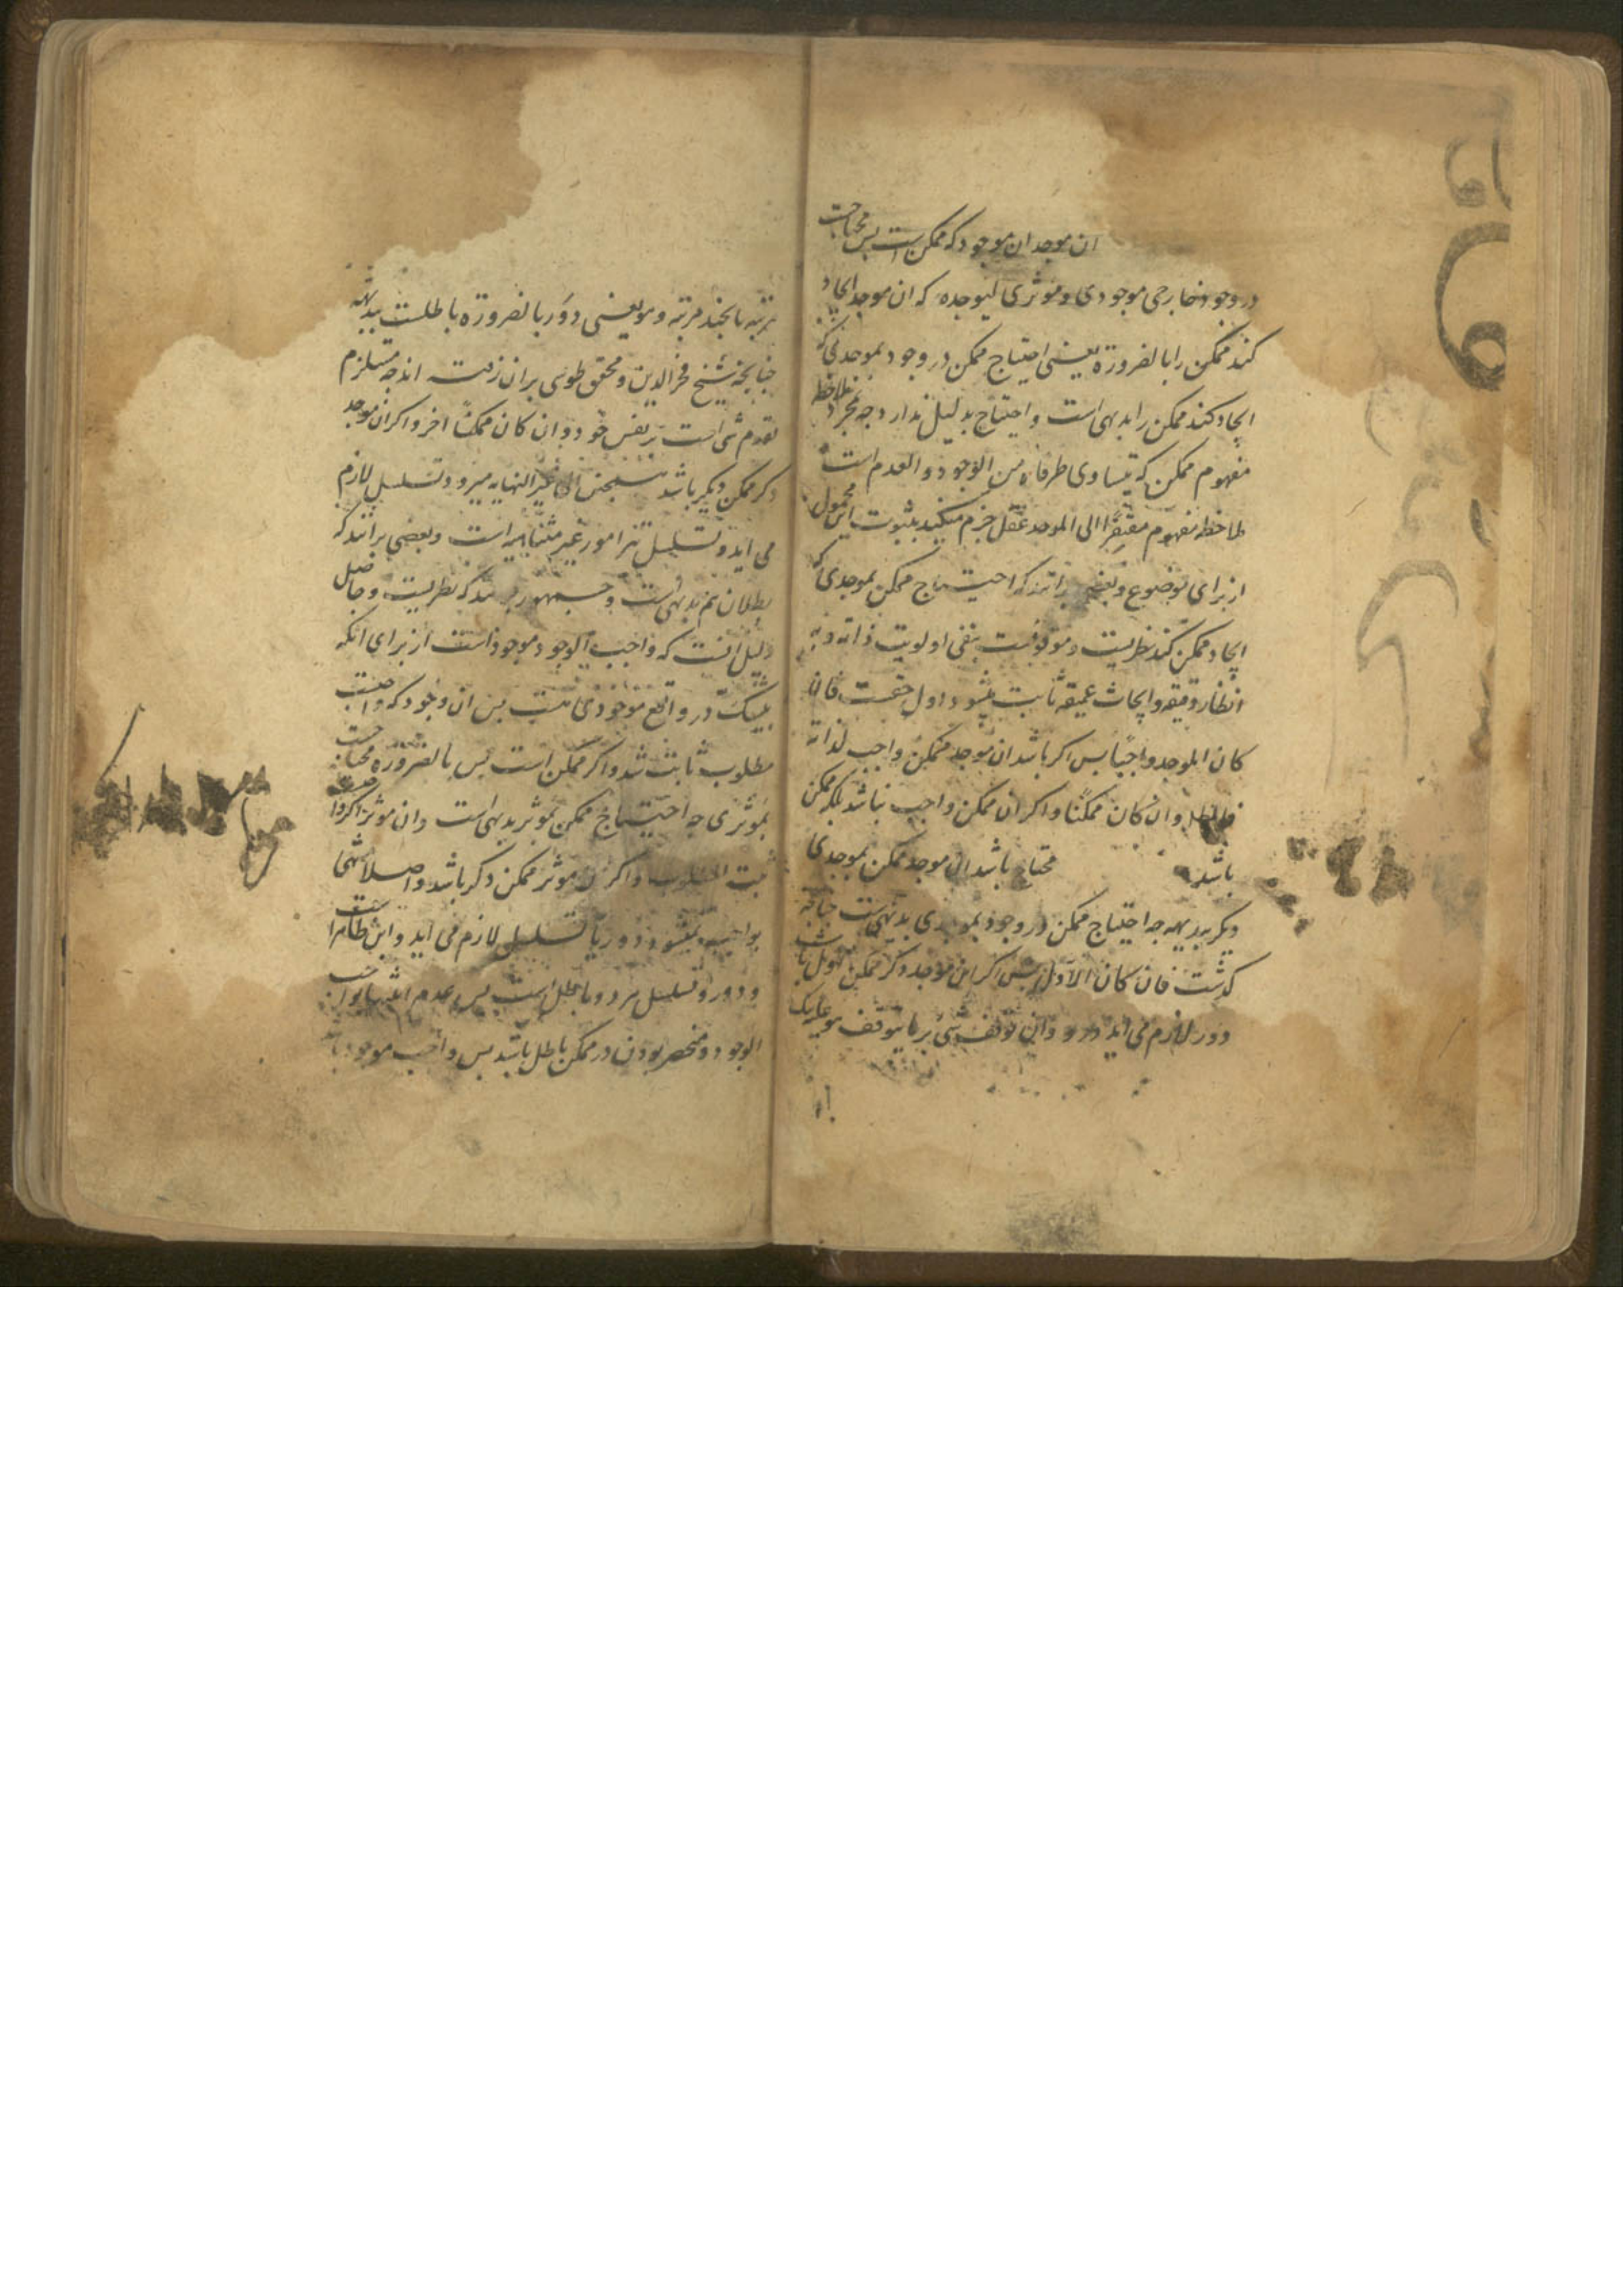 ان موجد ان موجود که ممکن است پس محتاجست
در وجود خارجی موجودی و موثری لیوجده که ان موجد ایجاد
کند ممکن را بالضرورة یعنی احتیاج ممکن در وجود بموجدی که
ایجاد کند ممکن را بدیهی است و احتیاج بدلیل ندارد چه بمجرد ملاحظه
مفهوم ممکن که یتساوی طرفاه من الوجود و العدم است
ملاحظه مفهوم مفتقرا الی الموجد عقل جزم میکند بثبوت این محمول
از برای موضوع و بعضی برانند که احتیاج ممکن بموجدی که
ایجاد ممکن کند نظریست و موقوفست بنفی اولویت ذاته و به
انظار دقیقه و ابحاث عمیقه ثابت میشود اول حقست فان
کان الموجد واجبًا پس اگر باشد ان موجد ممکن واجب لذاته
فالمطلوب وان کان ممکنًا و اگر ان ممکن واجب نباشد بلکه ممکن
باشد محتاج باشد ان موجد ممکن بموجدی
دیگر بدیهه چه احتیاج ممکن در وجود بموجدی بدیهیست چنانچه
گذشت فان کان الاول پس اگر این موجد دگر ممکن اول باشد
دور لازم می اید و دور وان توقف شی بر ما یتوقف هو علیه یک
مرتبه یا بچند مرتبه و هو یعنی دور بالضرورة باطلست بدیهة
چنانچه شیخ فخر الدین و محقق طوسی بران رفته اند چه مستلزم
تقدم شی است بر نفس خود و ان کان ممکنًا اخر و اگر ان موجد
دگر ممکن دیگر باشد سخن الی غیر النهایه میرود و تسلسل لازم
می اید و تسلسل تتر امور غیر متناهیه است و بعضی برانند که
بطلان هم بدیهی است و جمهور برانند که نظریست و حاصل
دلیل انست که واجب الوجود موجود است از برای انکه
بیشک در واقع موجودی هست پس ان وجود که واجبست
مطلوب ثابت شد و اگر ممکن است پس بالضرورة محتاجست
بموثری چه احتیاج ممکن بموثر بدیهی است وان موثر اگر واجبست
ثبت المطلوب و اگر ان موثر ممکن دگر باشد و اصلا منتهی
بواجب نمیشود دور یا تسلسل لازم می اید و این ظاهر است
و دور و تسلسل هر دو باطل است پس عدم انتها بواجب
الوجود و منحصر بودن در ممکن باطل باشد پس واجب موجود باشد